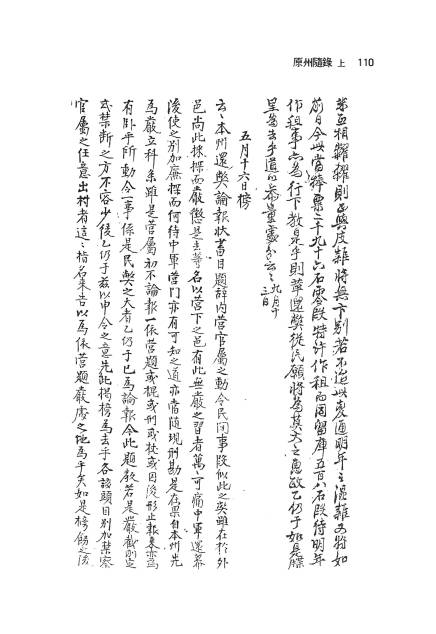 原州隨錄 上 110
相雜糶則正與皮雜將無下別若不追以變通明年之混雜又將如
前日今以當捧票二千九十六石零段特許作租而因留庫五百八石段待明年
作租事亦為行下教是乎則革還弊從民願將為莫大之惠敢乙仍于如是牒
呈為去乎道以參量處分云云 九月十三日
五月十六日榜
云云本州還弊論報狀書目題辭內營官屬之動令民間事段似此之類雖在於外
邑尚此採探而嚴懲是去等名以營下之邑有此無嚴之習者萬萬可痛中軍還幕
後使之別加廉探而何待中軍營門亦有可知之道亦當隨現刑勘是在果自本州先
為嚴立科条雖是官屬初不論報一依營題或棍或刑或杖或因後形止報來亦為
有卧乎所動令一事係是民弊之大者乙仍于已為論報今此題教若是嚴截則其
禁斷之方不容少後乙仍于玆以申令之意先此揭榜為去乎各該頭目別加禁察
官屬之任意出村者這這指名来告以為依營題嚴處之地為乎矣如是榜飭之後